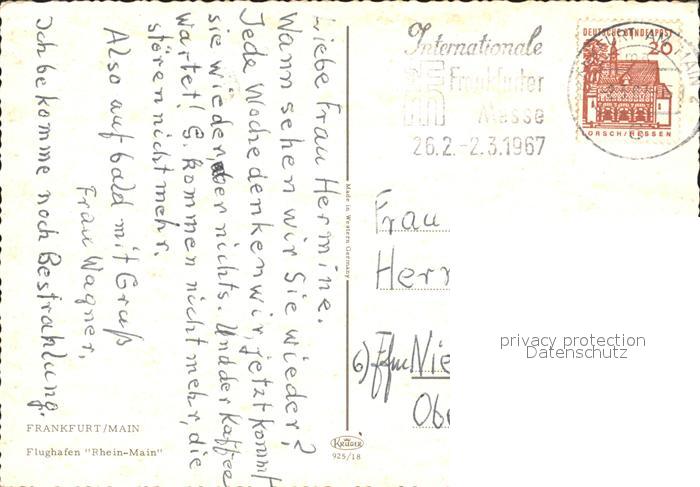 Liebe Frau Hermine.
Wann sehen wir Sie wieder?
Jede Woche denken wir, jetzt kommt
sie wieder aber nichts. Und der Kaffee
wartet! G. kommen nicht mehr, die
stören nicht mehr.
Also auf bald mit Gruß
Frau Wagner,
Ich bekomme noch Bestrahlung.
FRANKFURT/MAIN
Flughafen "Rhein-Main"
Made in Western Germany
KRÜGER
925/18
Internationale
Frankfurter
Messe
26.2.-2.3.1967
DEUTSCHE BUNDESPOST
20
LORSCH/HESSEN
Frau
Herr
6) Ffm Nie
Obe
privacy protection
Datenschutz